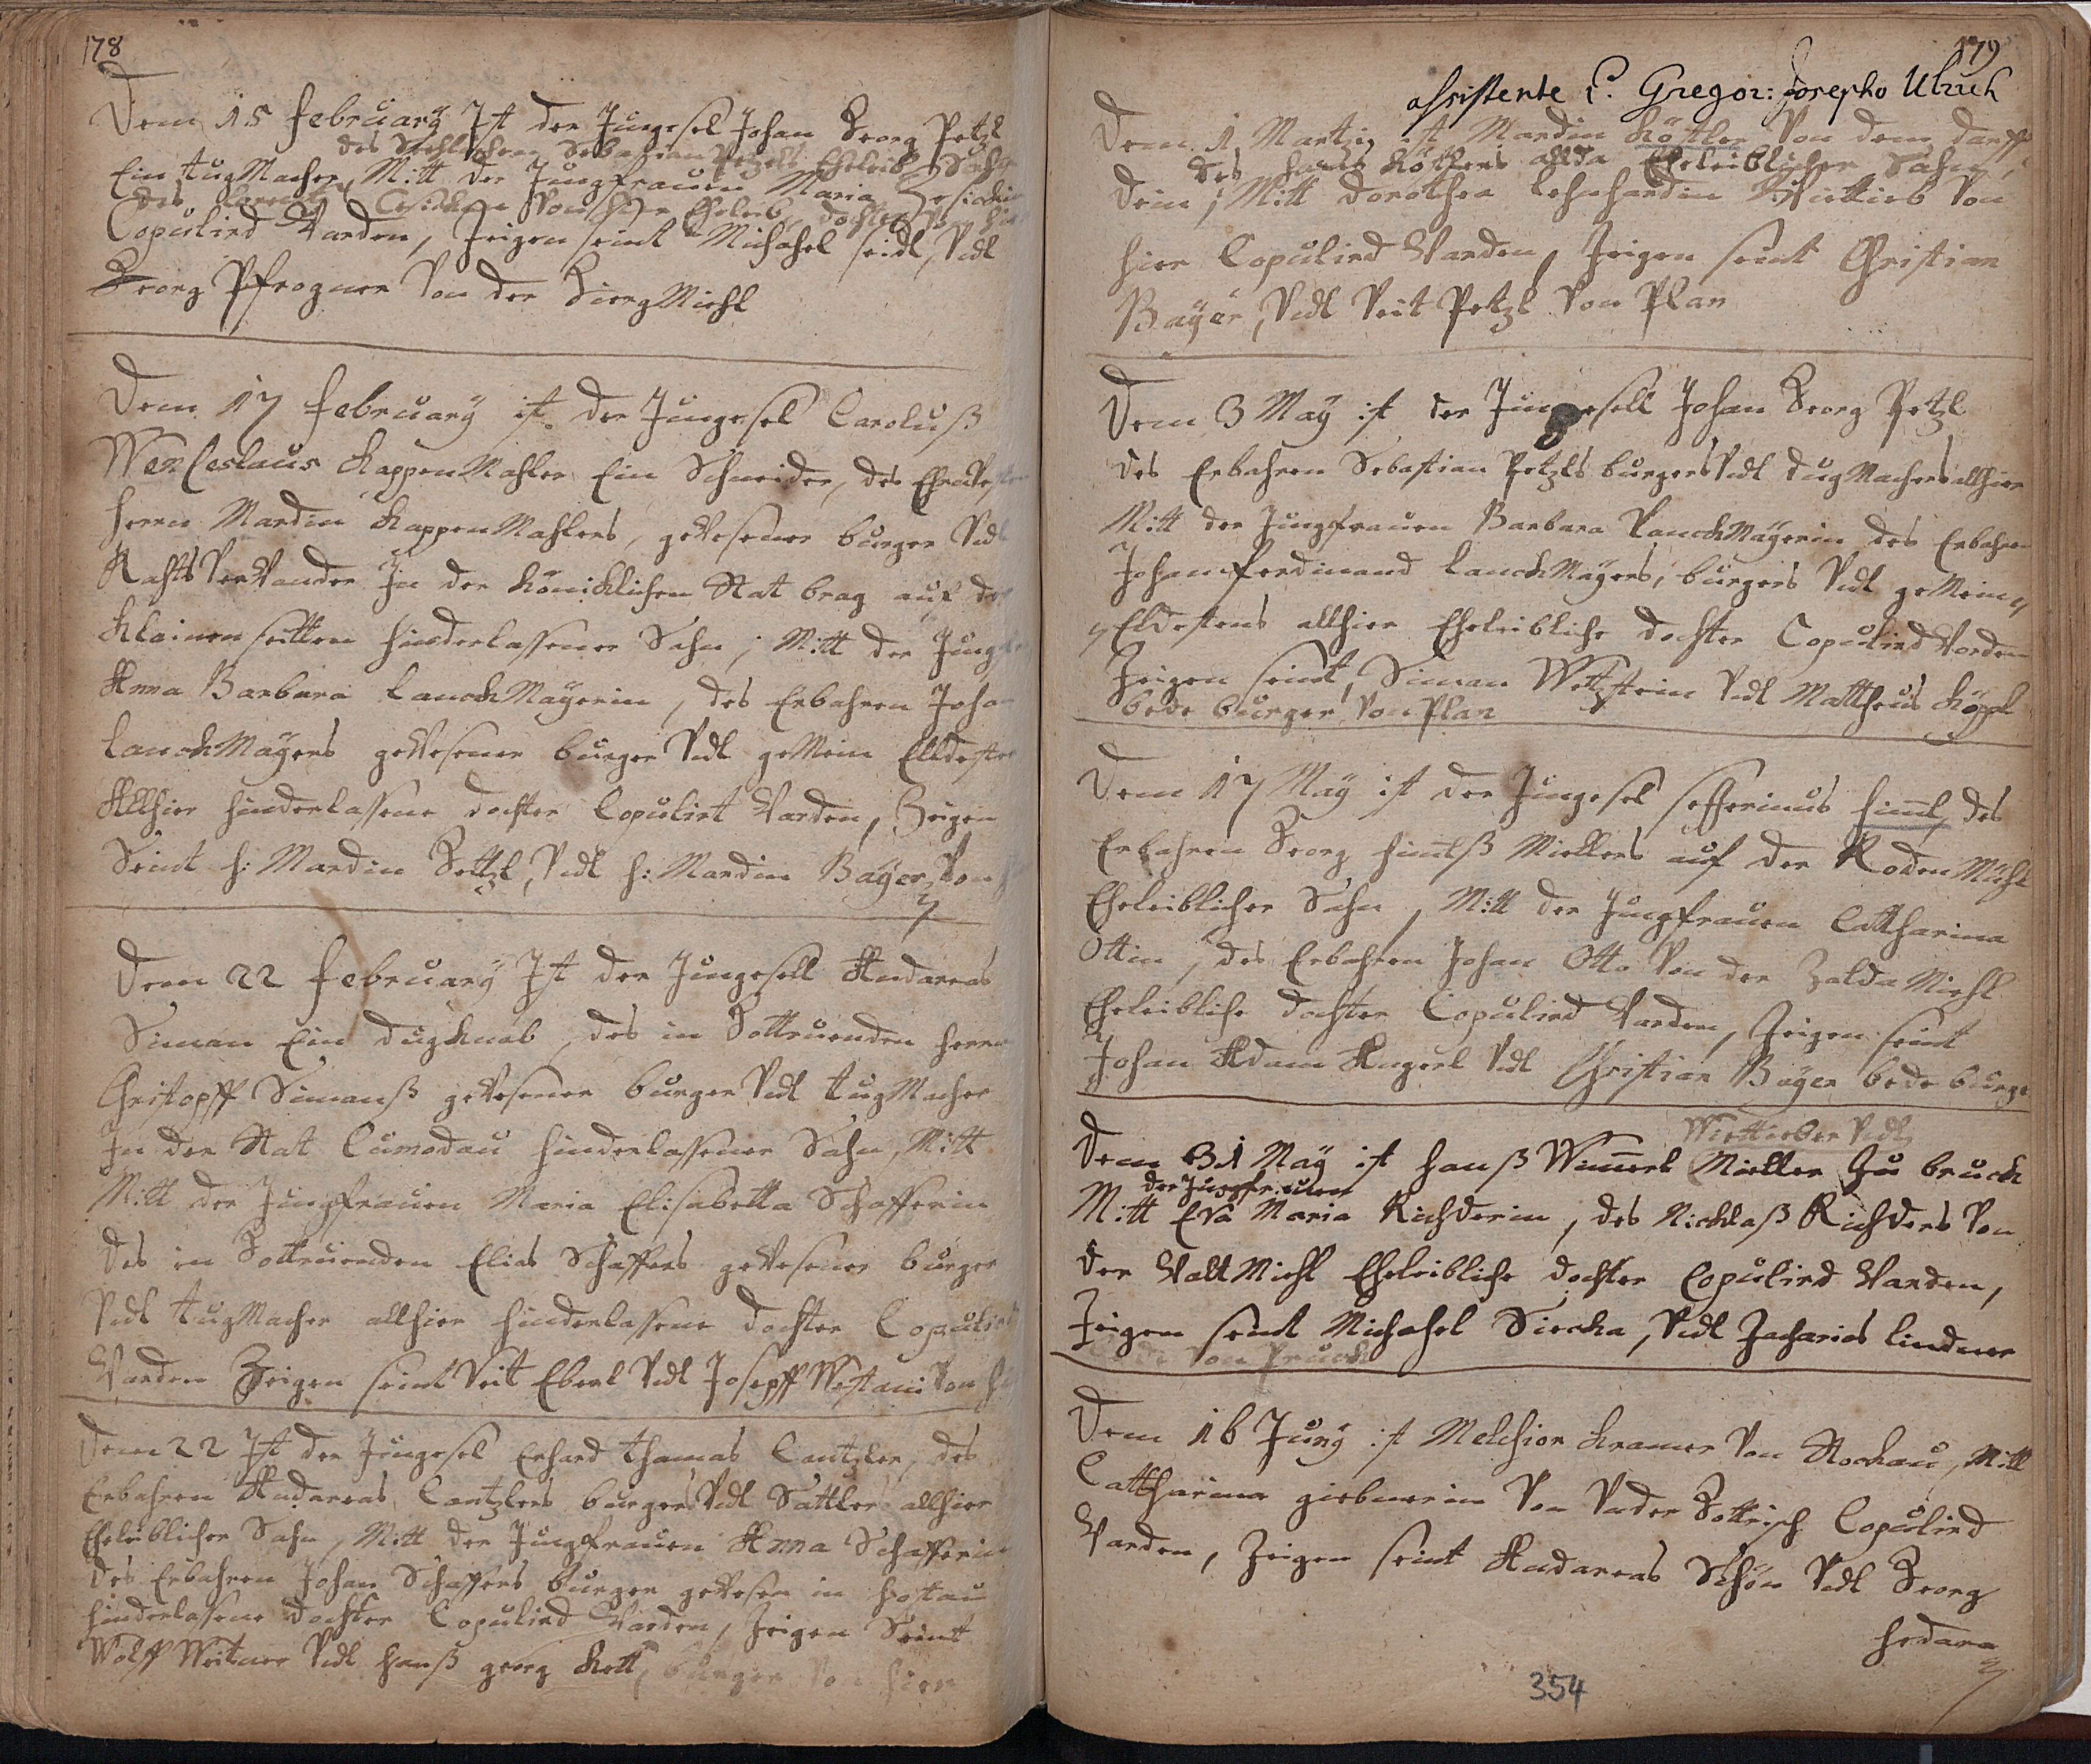 178
Dem 15 february Ist der Jungesel Johan Georg Petzl
des Sebastian Petzls Eheleib Sohn
Ein tugMacher, Mitt der Jungfrauen Maria
des von hier Eheleib dochter von hier
Copulird Warden, Zeigen seint Michahel seidl, Vndt
Georg Pfrogner Von der Miehl
Dem 17 february ist der Jungesel Caroluß
Wenceslaus KappenMahler Ein Schneider, des Ehrnvesten
herrn Mardin KappenMahlers, geWesener burger Vndt
RahtsVerWander In der Königlichen Stat brag auf der
Klainen seitten hinderlassener Sohn, Mitt der Jungfr
Anna Barbara LanckMäyerin, des Erbahren Johan
LanckMäyers geWesener burger Vndt geMein Elldester
Allhier hinderlassene dochter Copulirt Warden, Zeigen
Seint h: Mardin Settzl, Vndt h: Mardin Bayer, Von
Dem 22 february Ist der Jungesell Andareas
Siman Ein dugKnab, des in Gottruenden herrn
Christopff Simanß geWesener burger Vndt tugMacher
In der Stat Cumodau hinderlassener Sohn, Mitt
Mitt der Jungfrauen Maria Elisabetta Schafferin
des in Gottruenden Elias Schaffers geWesener burger
Vndt tugMacher allhier hinderlassene dochter Copulird
Warden Zeigen seint Veit Eberl Vndt Joseff Von
Dem 22 Ist der Jungesel Erhard thamas Cantzler, des
Erbahren Andareas Cantzlers burgers Vndt Sattlers allhier
Eheleiblicher Sohn, Mitt der Jungfrauen Anna Schafferin
des Erbahren Johan Schaffers burger geWesen in hostau
hinderlassene dochter Copulird Warden, Zeigen Seint
Wolff Weitner Vndt hanß georg Kett, burger Von hier
179
assistente P. Gregor: Josepho Ulrich
Dem 1 Martiy ist Mardin Köstler Von dem darff
des hans Köstlers allda Eheleiblicher Sohn,
Mitt Dorothea Lehnhardin Wiettieb Von
hier Copulird Warden, Zeigen seint Christian
Bayer, Vndt Veit Petzl Von Plan
Dem 3 May ist der Jungesell Johan Georg Petzl
des Erbahren Sebastian Petzls burgers Vndt dugMachers allhier
Mitt der Jungfrauen Barbara LanckMäyerin des Erbahren
Johan ferdinand LanckMäyers, burgers Vndt geMein
Eldestens allhier Eheleibliche dochter Copulird Worden
Zeigen seint, Siman Wettzstein Vndt Mattheus Köppl
bede burger Von Plan
Dem 17 May ist der Jungesel sefferinus himl, des
Erbahren Georg himlß Miellers auf der Roden Miehl
Eheleiblicher Sohn, Mitt der Jungfrauen Cattharina
Ottin, des Erbahren Johan Otto Von der Miehl
Eheleibliche dochter Copulird Warden, Zeigen seint
Johan Adam Angerl Vndt Christian Bayer bede burger
Wiettieber Vndt
Dem 31 May ist hanß Wimerl Mieller Zu bruck
der Jungfrauen
Mitt Eva Maria Richderin, des Nicklaß Richders Von
der WaltMiehl Eheleibliche dochter Copulird Warden,
Zeigen seint Michahel Siecka, Vndt Zacharias lindner
bede Von Pruck
Dem 16 Juny ist Melchior Kramer Von Stockau, Mitt
Cattharina giebnerin Von Vnder Gottrisch Copulird
Warden, Zeigen seint Andareas Schön Vndt Georg
354